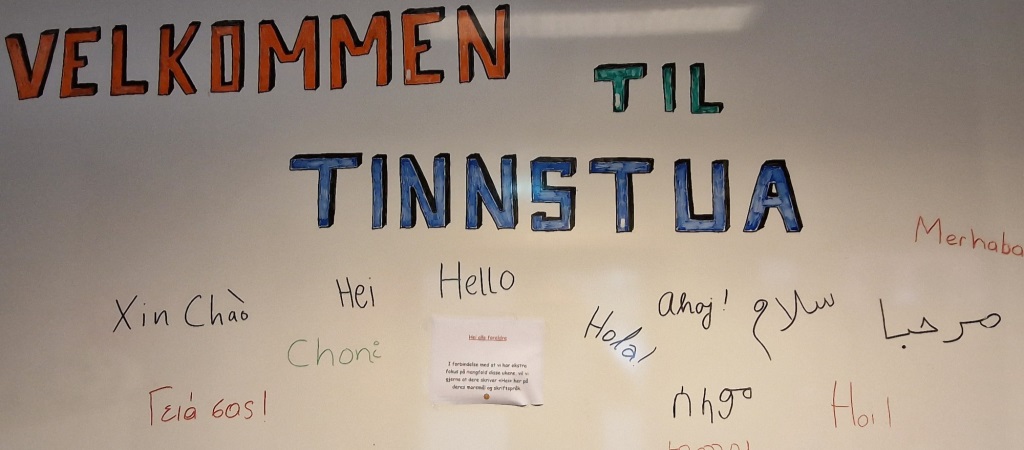 VELKOMMEN
TIL
TINNSTUA
Merhaba
Xin Chào
Hei
Hello
Ahoj!
سلام
مرحبا
Hola!
Choni
Hei alle foreldre
I forbindelse med at vi har ekstra
fokus på mangfold disse ukene, vil vi
gjerne at dere skriver «Hei» her på
deres morsmål og skriftspråk.
Γειά σας!
ሰላም
Hoi!